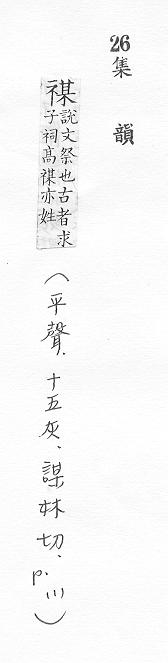 26集 韻
禖說文祭也古者求
子祠高禖亦姓
（平聲．十五灰．謨杯切．p.111）